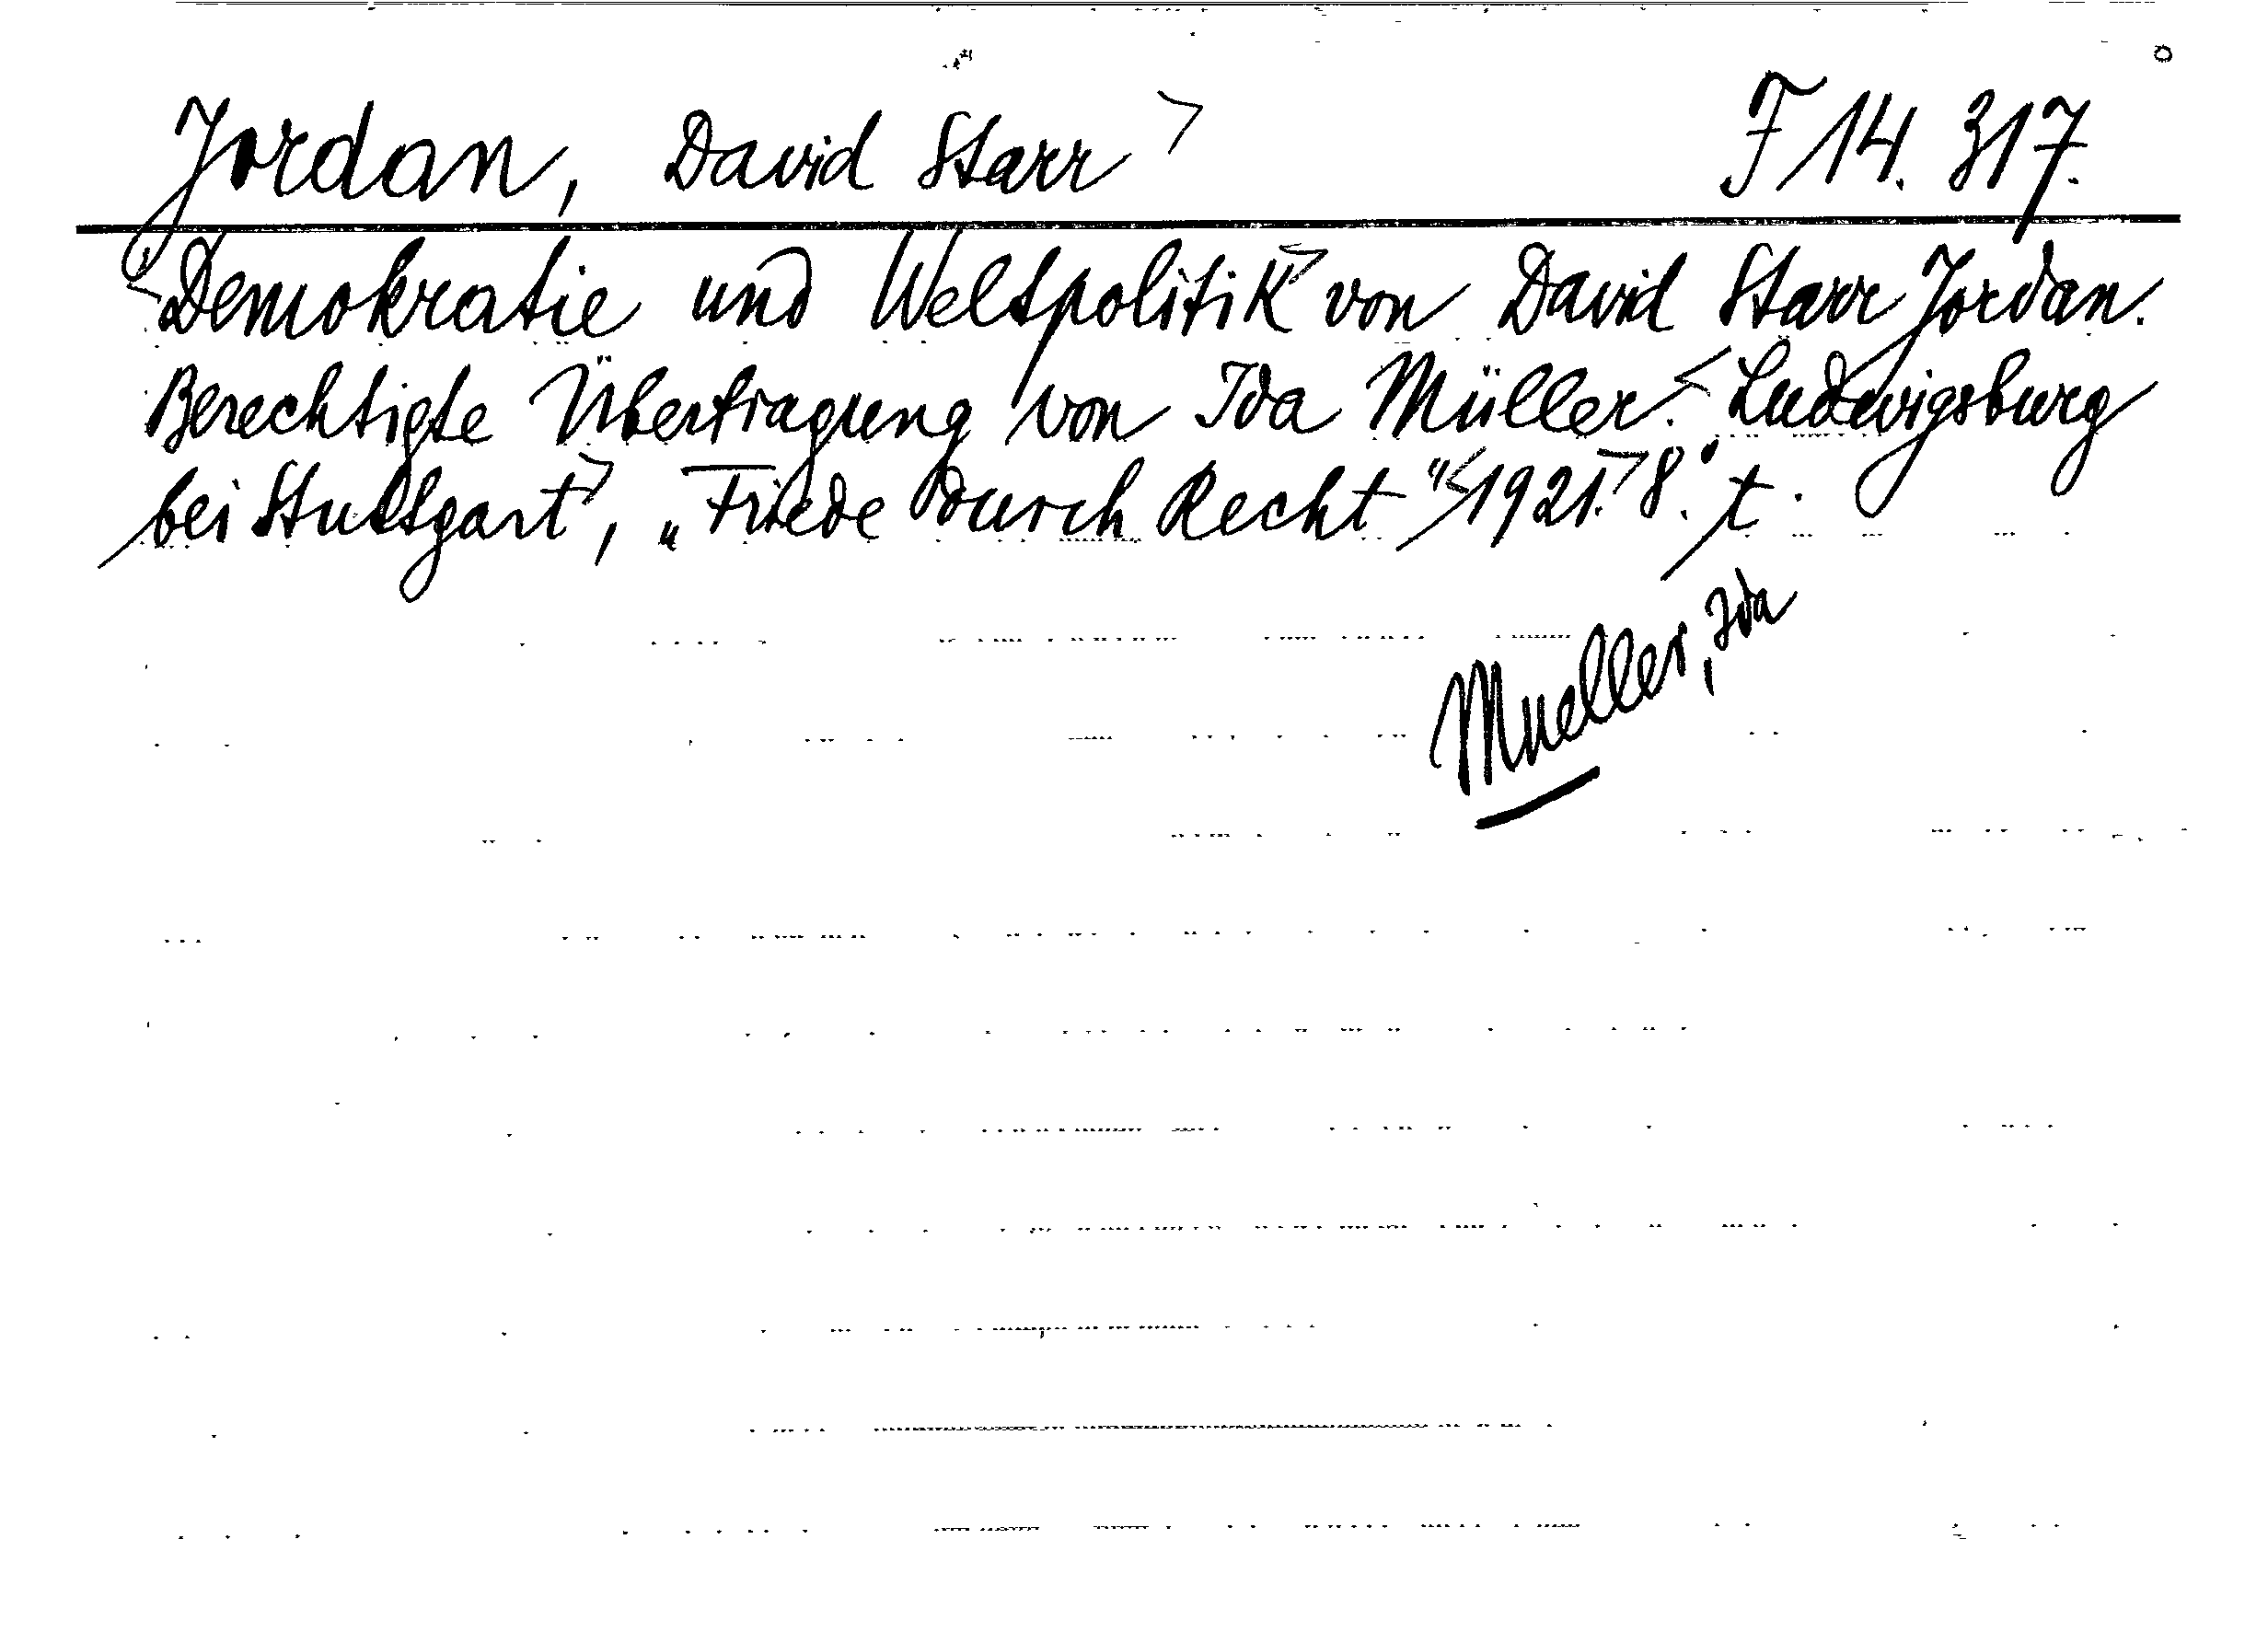 Jordan, David Starr> F 14. 317.
<Demokratie und Weltpolitik> von David Starr Jordan.
Berechtigte Übertragung von Ida Müller. <Ludwigsburg
bei Stuttgart>, „Friede durch Recht" <1921.> 8°. t.
Mueller, Ida